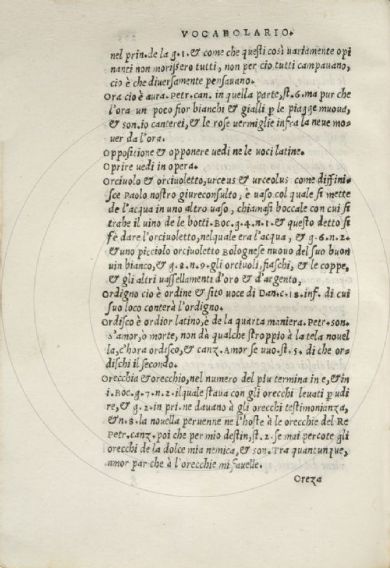 VOCABOLARIO.
nel prin. de la g.1. & come che questi così uariamente opi
nanti non morissero tutti, non per cio tutti campauano,
cio è che diuersamente pensauano.
Ora cio è aura. Petr. can. in quella parte, st. 6. ma pur che
l'ora un poco fior bianchi & gialli p le piagge muoua,
& son. io canterei, & le rose uermiglie infra la neue mo-
uer da l'ora.
Opposìtione & opponere uedi ne le uoci latine.
Oprire uedi in opera.
Orciuolo & orciuoletto, urceus & urceolus come diffini-
sce Paolo nostro giureconsulto, è uaso col quale si mette
de l'acqua in uno altro uaso, chiamasi boccale con cui si
trahe il uino de le botti. Boc. g.4. n.1. & questo detto si
fè dare l'orciuoletto, nelquale era l'acqua, & g.6. n.2.
& uno picciolo orciuoletto Bolognese nuouo del suo buon
uin bianco, & g.2. n.9. gli orciuoli, fiaschi, & le coppe,
& gli altri uasellamenti d'oro & d'argento,
Ordigno cio è ordine & sito uoce di Dan. c.18. inf. di cui
suo loco conterà l'ordigno.
Ordisco è ordior latino, è de la quarta maniera. Petr. son.
s'amor, o morte, non dà qualche stroppio à la tela nouel
la, c'hora ordisco, & canz. Amor se uuo. st. 5. di che ora
dischi il secondo.
Orecchia & orecchio, nel numero del piu termina in e, & in
i. Boc. g.7. n.2. il quale staua con gli orecchi leuati p udi
re, & g.2. in pri. ne dauano à gli orecchi testimonianza,
& n.8. la nouella peruenne ne l'hoste à le orecchie del Re
Petr. canz. poi che per mio destin, st.2. se mai percote gli
orecchi de la dolce mia nemica, & son. Tra quantunque,
amor par che à l'orecchie mi fauelle.
Oreza